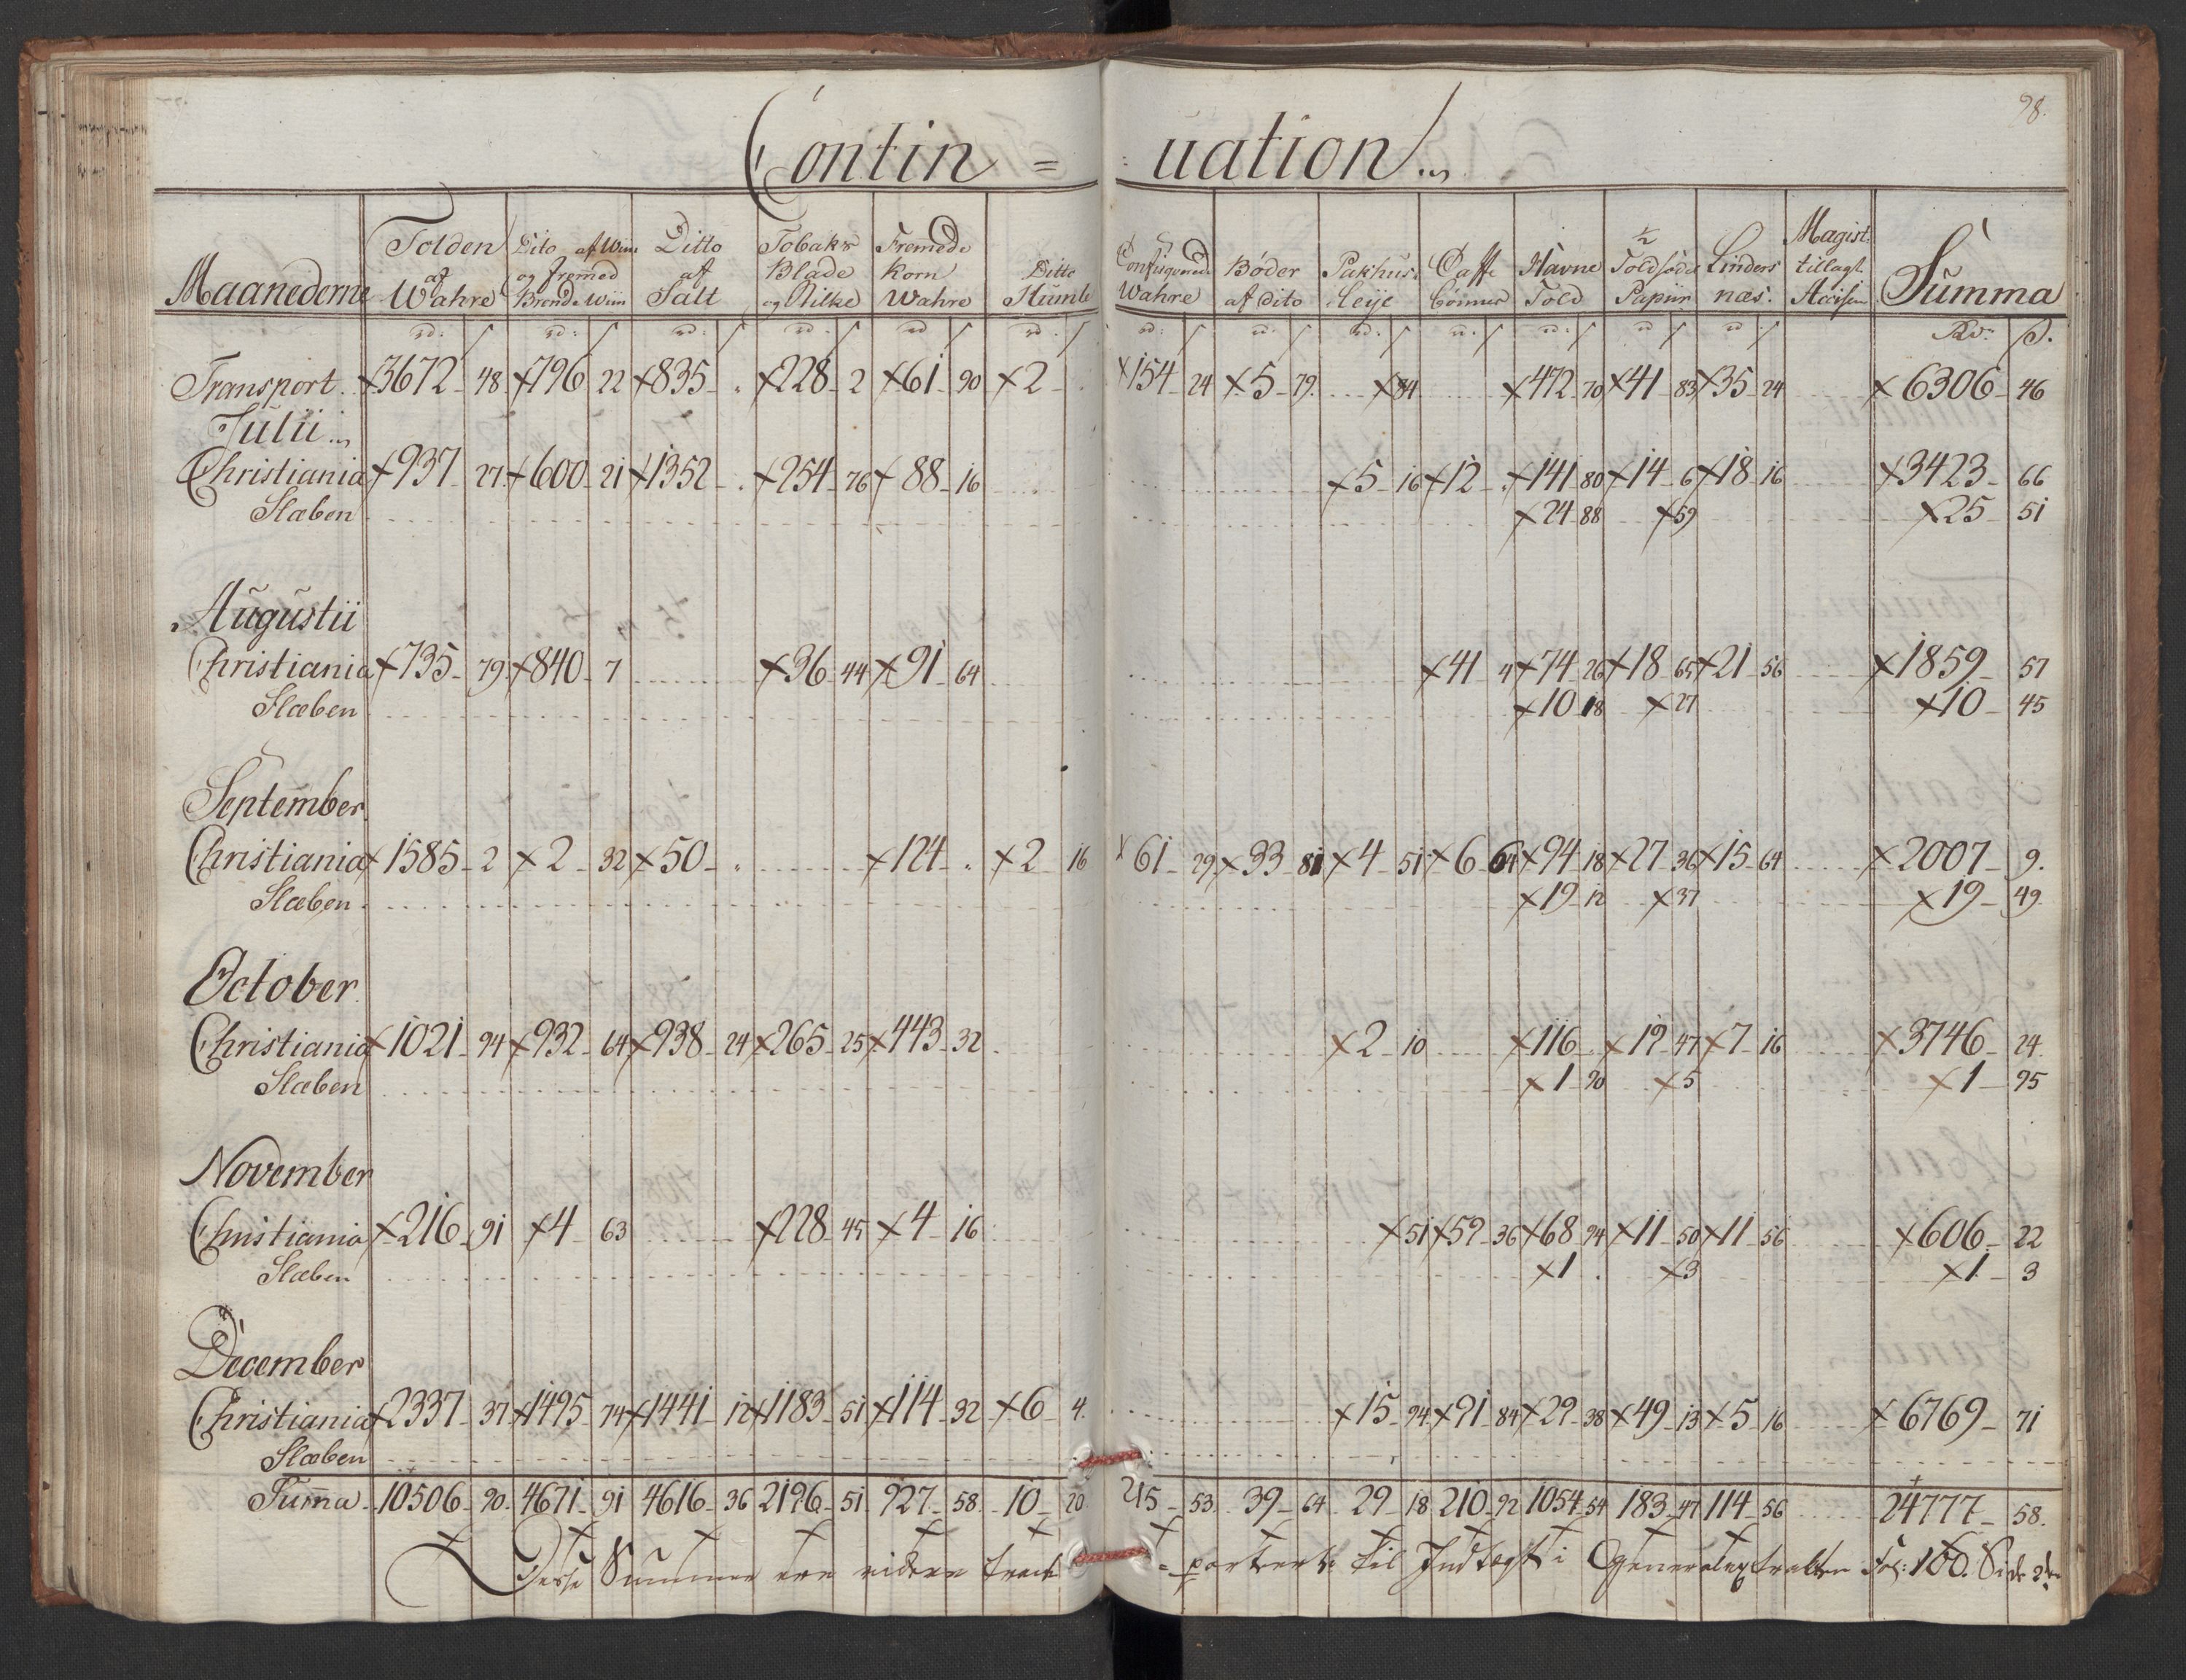 98.
Contin = = uation
Maanederne Tolden af Wahre Dito af Wiin og fremed Brende Wiin Ditto af Salt Tobaks Blade og Stilke Fremede Korn Wahre Ditto Humle Confisqverede Wahre Bøder af dito Pakhus Leije Caffe Bønner Havne Told ½ Toldsædel Papiir Linders næs. Magist: tillagt Accisen Summa
rd: s rd: s rd: s rd: s rd s rd: s rd: s rd: s rd: s rd: s rd: s rd s rd: s Rdr: s.
Transport. 3672 48 796 22 835 . 228 2 61 90 2 . 154 24 5 79. 84 472 70 41 83 35 24 6306 46
Julii
Christiania 937 27 600 21 1352 . 254 76 88 16 5 16 12 . 141 80 14 6 18 16 3423 66
Slæben 24 88 59 25 51
Augustii
Christiania 735 79 840 7 36 44 91 64 41 4 74 26 18 65 21 56 1859 57
Slæben 10 18 27 10 45
September
Christiania 1585 2 2 32 50 . 124 . 2 16 61 29 33 81 4 51 6 64 94 18 27 36 15 64 2007 9.
Slæben 19 12 37 19 49
October
Christiania 1021 94 932 64 938 24 265 25 443 32 2 10 116 . 19 47 7 16 3746 24
Slæben 1 90 5 1 95
November
Christiania 216 91 4 63 228 45 4 16 51 59 36 68 94 11 50 11 56 606 22
Slæben 1 . 3 1 3
December
Christiania 2337 37 1495 74 1441 12 1183 51 114 32 6 4. 15 94 91 84 29 38 49 13 5 16 6769 71
Slæben
Summa 10506 90. 4671 91 4616 36 2196 51 927 58. 10 20 215 53. 39 64 29 18 210 92 1054 54 183 47 114 56 24777 58.
Disse Summer ere videre trans = porterte til Indtægt i Generalextracten Fol: 100. Side 2den